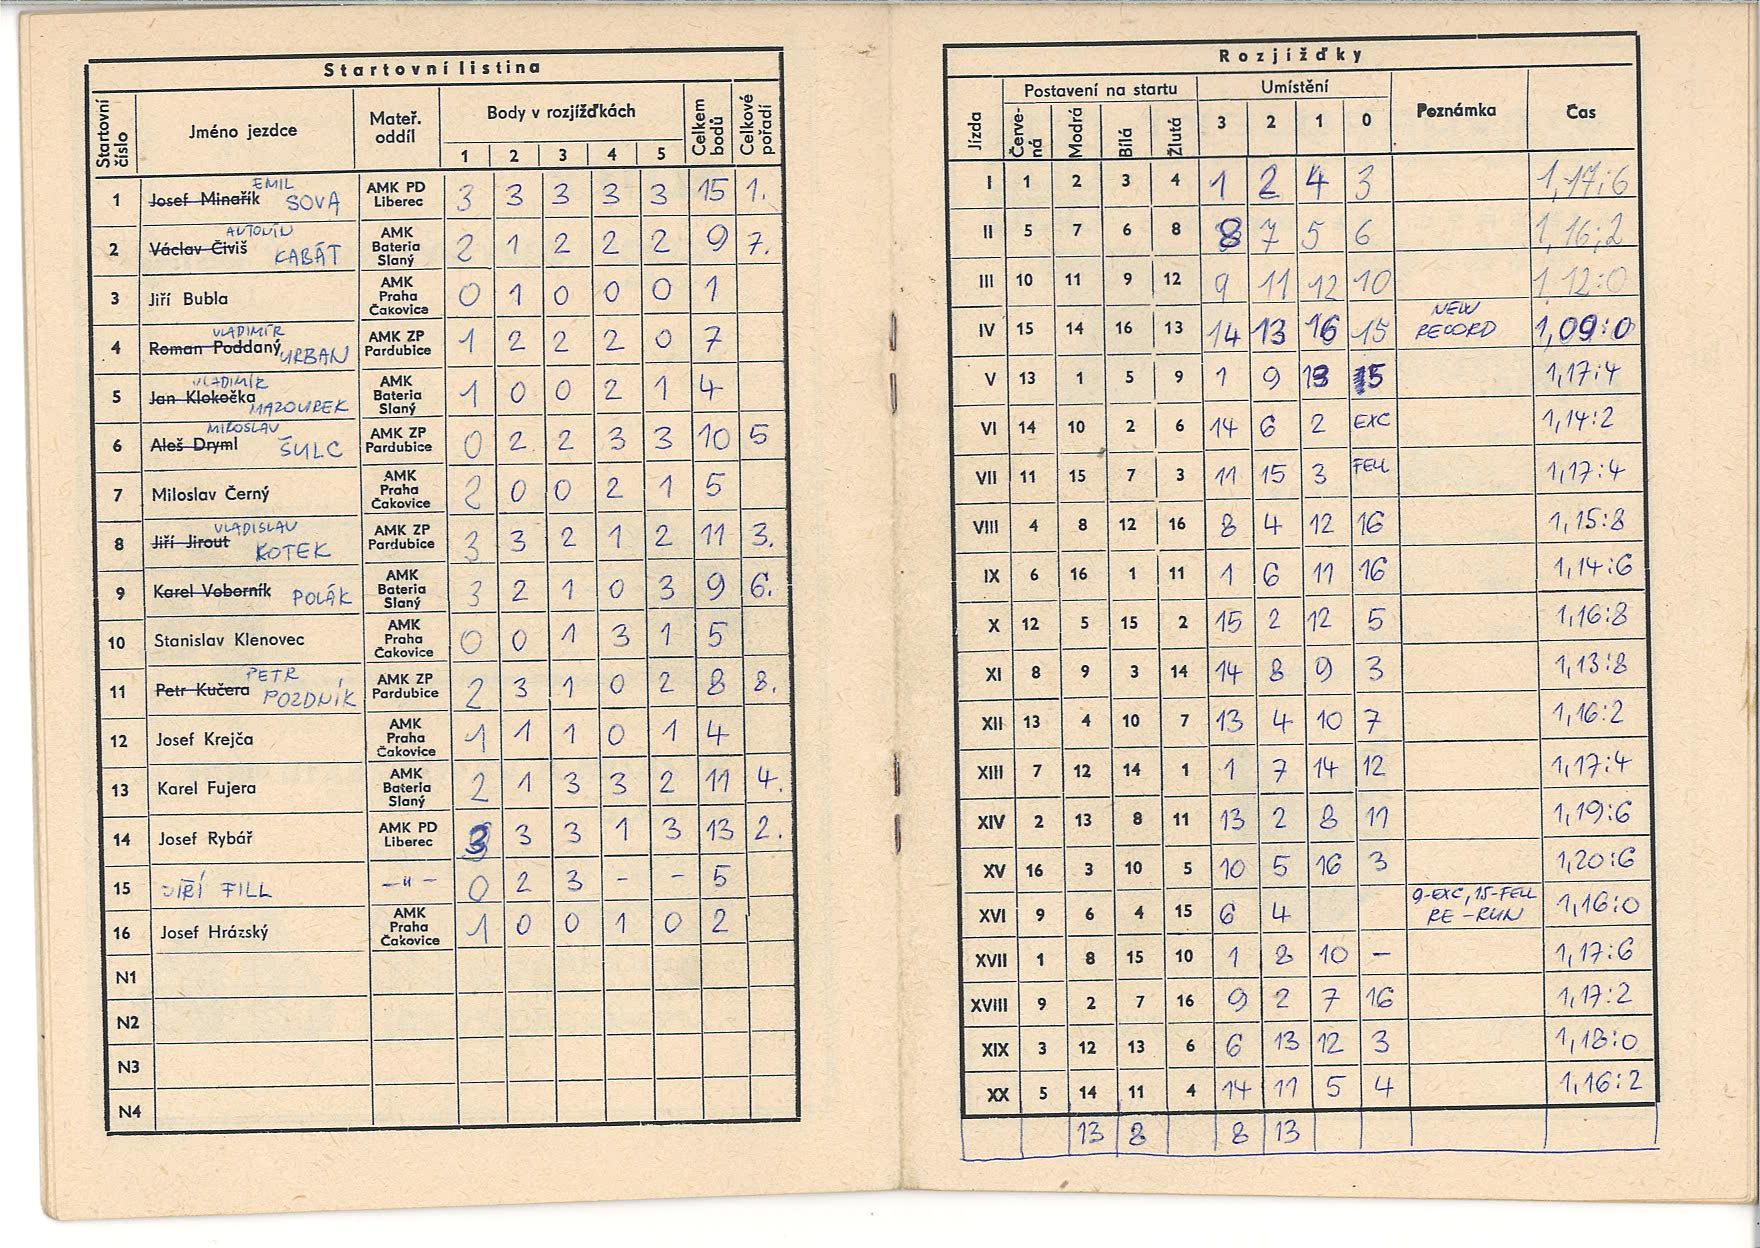 Startovní listina
Startovní číslo | Jméno jezdce | Mateř. oddíl | Body v rozjížďkách | Celkem bodů | Celkové pořadí
1 2 3 4 5
1 Josef Minařík EMIL SOVA AMK PD Liberec 3 3 3 3 3 15 1.
2 Václav Čiviš ANTONÍN KABÁT AMK Bateria Slaný 2 1 2 2 2 9 7.
3 Jiří Bubla AMK Praha Čakovice 0 1 0 0 0 1
4 Roman Poddaný VLADIMÍR URBAN AMK ZP Pardubice 1 2 2 2 0 7
5 Jan Klokočka VLADIMÍR MAZOUREK AMK Bateria Slaný 1 0 0 2 1 4
6 Aleš Dryml MIROSLAV ŠULC AMK ZP Pardubice 0 2 2 3 3 10 5
7 Miloslav Černý AMK Praha Čakovice 2 0 0 2 1 5
8 Jiří Jirout VLADISLAV KOTEK AMK ZP Pardubice 3 3 2 1 2 11 3.
9 Karel Voborník POLÁK AMK Bateria Slaný 3 2 1 0 3 9 6.
10 Stanislav Klenovec AMK Praha Čakovice 0 0 1 3 1 5
11 Petr Kučera PETR POZDNÍK AMK ZP Pardubice 2 3 1 0 2 8 8.
12 Josef Krejča AMK Praha Čakovice 1 1 1 0 1 4
13 Karel Fujera AMK Bateria Slaný 2 1 3 3 2 11 4.
14 Josef Rybář AMK PD Liberec 3 3 3 1 3 13 2.
15 JIŘÍ FILL —"— 0 2 3 - - 5
16 Josef Hrázský AMK Praha Čakovice 1 0 0 1 0 2
N1
N2
N3
N4
Rozjížďky
Jízda | Postavení na startu | Umístění | Poznámka | Čas
Červená Modrá Bílá Žlutá 3 2 1 0
I 1 2 3 4 1 2 4 3 1,17:6
II 5 7 6 8 8 7 5 6 1,16:2
III 10 11 9 12 9 11 12 10 1 12:0
IV 15 14 16 13 14 13 16 15 NEW RECORD 1,09:0
V 13 1 5 9 1 9 13 15 1,17:4
VI 14 10 2 6 14 6 2 EXC 1,14:2
VII 11 15 7 3 11 15 3 FELL 1,17:4
VIII 4 8 12 16 8 4 12 16 1,15:8
IX 6 16 1 11 1 6 11 16 1,14:6
X 12 5 15 2 15 2 12 5 1,16:8
XI 8 9 3 14 14 8 9 3 1,13:8
XII 13 4 10 7 13 4 10 7 1,16:2
XIII 7 12 14 1 1 7 14 12 1,17:4
XIV 2 13 8 11 13 2 8 11 1,19:6
XV 16 3 10 5 10 5 16 3 1,20:6
XVI 9 6 4 15 6 4 9-EXC, 15-FELL RE-RUN 1,16:0
XVII 1 8 15 10 1 8 10 – 1,17:6
XVIII 9 2 7 16 9 2 7 16 1,17:2
XIX 3 12 13 6 6 13 12 3 1,18:0
XX 5 14 11 4 14 11 5 4 1,16:2
13 8 8 13